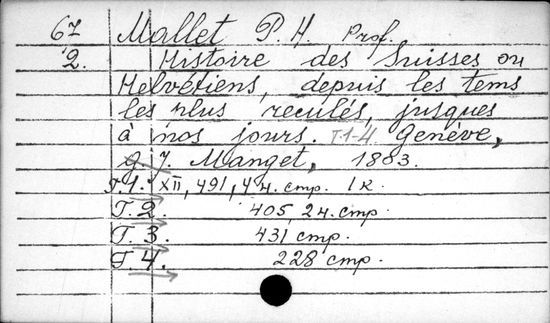 67 Mallet P. H. Prof.
2. Histoire des Suisses ou
Helvétiens, depuis les tems
les plus reculés, jusques
à nos jours. T.1-4 Genève,
G. J. Manget, 1803.
T.1. XII, 491, 4 н. стр. 1 к.
T. 2. 405, 2 н. стр.
T. 3. 431 стр.
T. 4. 228 стр.